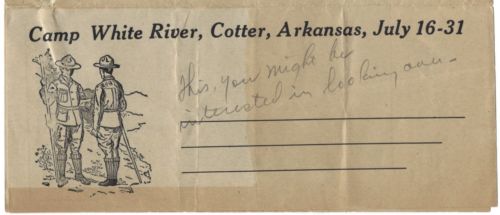 Camp White River, Cotter, Arkansas, July 16-31
this, you might be
interested in looking over -